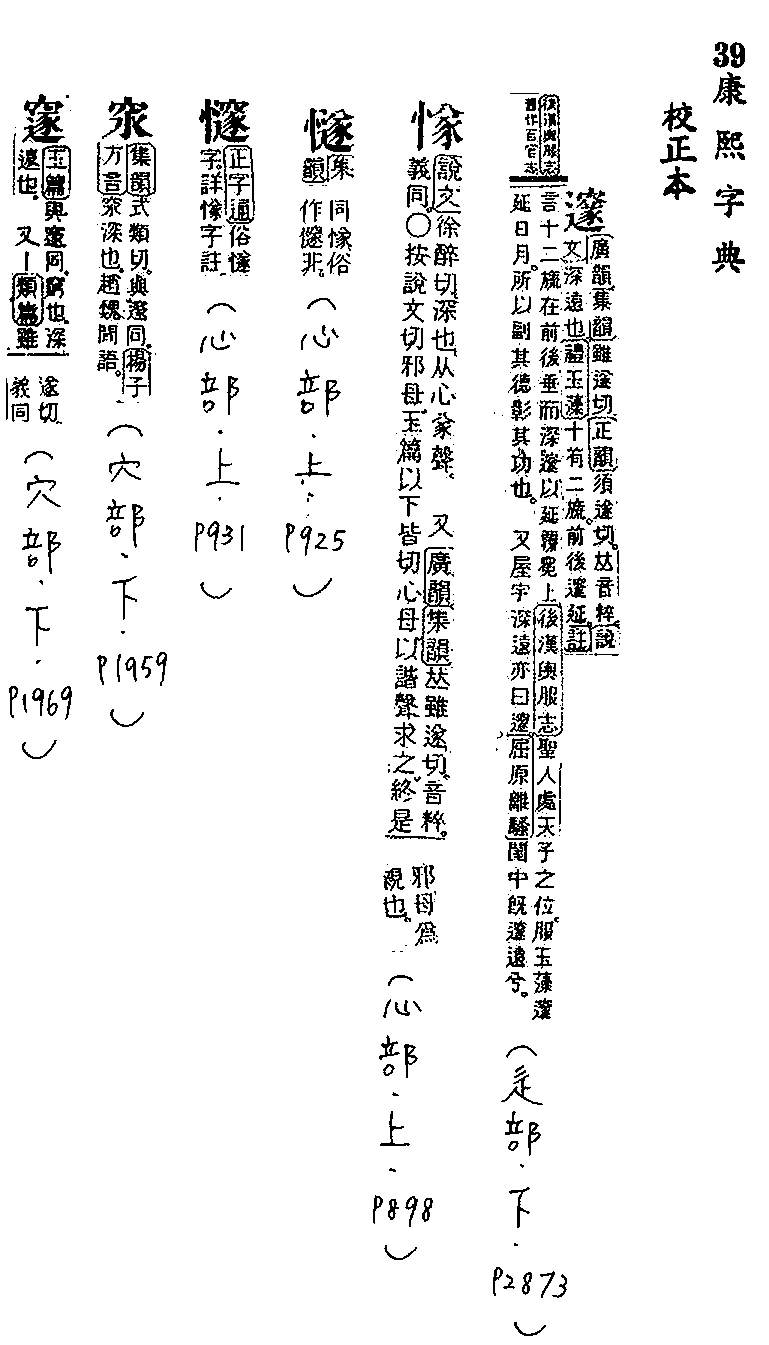 39康熙字典
校正本
後漢輿服志
舊作百官志
邃 廣韻集韻雖遂切正韻須遂切𠀤音粹說
文深遠也禮玉藻十有二旒前後邃延註
言十二旒在前後垂而深邃以延覆冕上後漢輿服志聖人處天子之位服玉藻邃
延日月所以副其德彰其功也。 又屋宇深遠亦曰邃屈原離騷閨中旣邃遠兮。
(辵部．下．P2873)
㥞 說文徐醉切深也从心㒸聲 又廣韻集韻𠀤雖遂切音粹。
義同○按說文切邪母玉篇以下皆切心母以諧聲求之終是
邪母爲
也。
(心部．上．P898)
集 同㥞俗
韻 作 非
(心部．上．P925)
正字通俗
字詳㥞字註
(心部．上．P931)
集韻式類切與邃同揚子
方言 深也趙魏閒語。
(穴部．下．P1959)
䆳 玉篇與邃同窮也深
遠也。又|類篇雖
遂切
義同
(穴部．下．P1969)